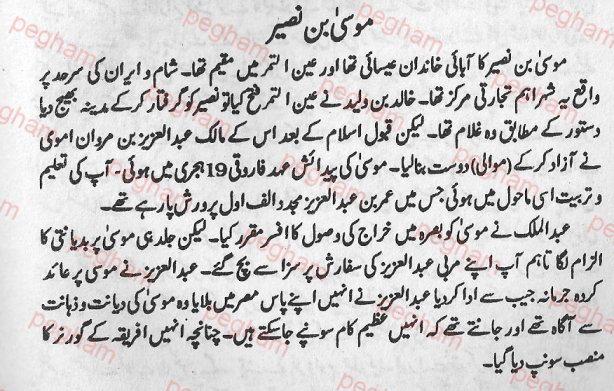 موسیٰ بن نصیر
موسیٰ بن نصیر کا آبائی خاندان عیسائی تھا اور عین التمر میں مقیم تھا۔ شام و ایران کی سرحد پر
واقع یہ شہر اہم تجارتی مرکز تھا۔ خالد بن ولید نے عین التمر فتح کیا تو نصیر کو گرفتار کر کے مدینہ بھیج دیا
دستور کے مطابق وہ غلام تھا۔ لیکن قبول اسلام کے بعد اس کے مالک عبدالعزیز بن مروان اموی
نے آزاد کر کے (موالی) دوست بنا لیا۔ موسیٰ کی پیدائش عہد فاروقی 19 ہجری میں ہوئی۔ آپ کی تعلیم
و تربیت اسی ماحول میں ہوئی جس میں عمر بن عبدالعزیز مجدد الف اول پرورش پا رہے تھے۔
عبدالملک نے موسیٰ کو بصرہ میں خراج کی وصول کا افسر مقرر کیا۔ لیکن جلد ہی موسیٰ پر بددیانتی کا
الزام لگا تاہم آپ اپنے مربی عبدالعزیز کی سفارش پر سزا سے بچ گئے۔ عبدالعزیز نے موسیٰ پر عائد
کردہ جرمانہ جیب سے ادا کر دیا عبدالعزیز نے انہیں اپنے پاس مصر میں بلایا وہ موسیٰ کی دیانت و ذہانت
سے آگاہ تھے اور جانتے تھے کہ انہیں عظیم کام سونپے جا سکتے ہیں۔ چنانچہ انہیں افریقہ کے گورنر کا
منصب سونپ دیا گیا۔
pegham